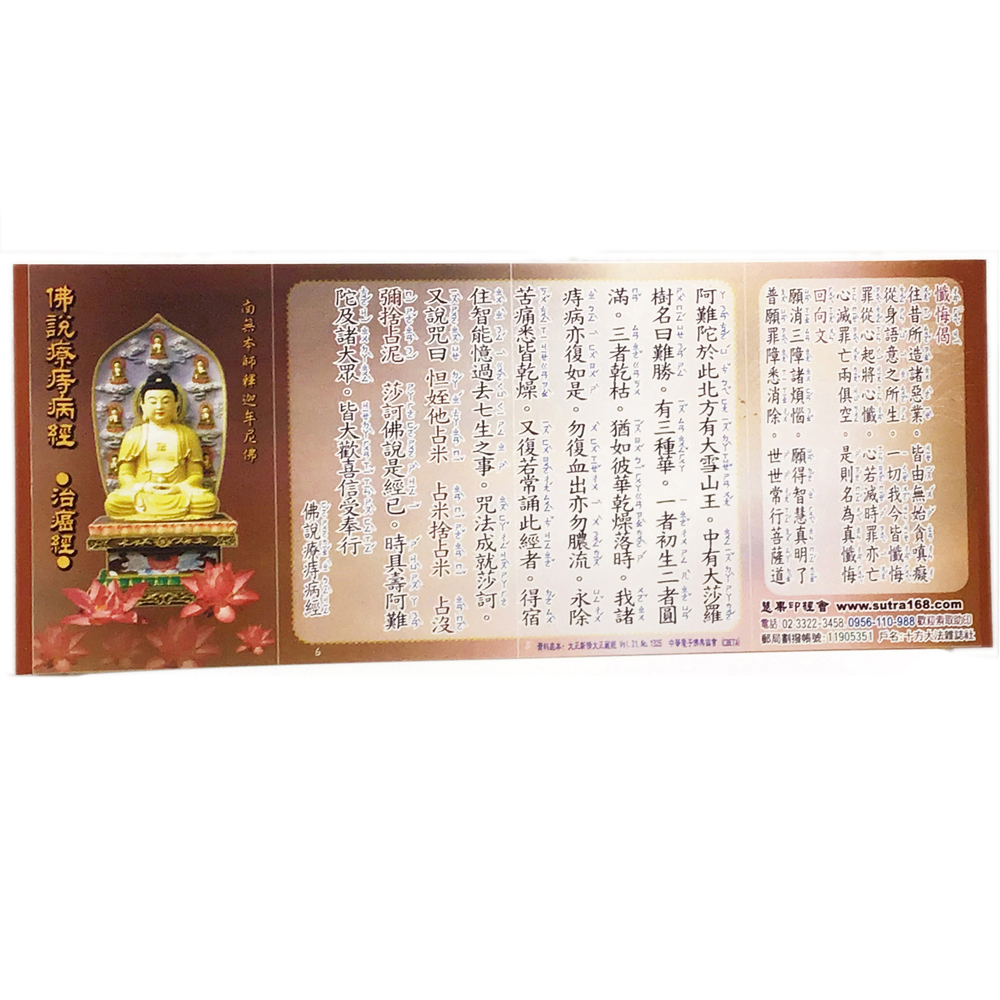 懺悔偈
往昔所造諸惡業。皆由無始貪嗔癡
從身語意之所生。一切我今皆懺悔
罪從心起將心懺。心若滅時罪亦亡
心滅罪亡兩俱空。是則名為真懺悔
回向文
願消三障諸煩惱。願得智慧真明了
普願罪障悉消除。世世常行菩薩道
印經會 www.sutra168.com
電話 02 3322-3458 0956-110-988 歡迎索取助印
郵局劃撥帳號：11905351 戶名：十方大法雜誌社
阿難陀於此北方有大雪山王。中有大莎羅
樹名曰難勝。有三種華。一者初生二者圓
滿。三者乾枯。猶如彼華乾燥落時。我諸
痔病亦復如是。勿復血出亦勿膿流。永除
苦痛悉皆乾燥。又復若常誦此經者。得宿
住智能憶過去七生之事。咒法成就莎訶。
又說咒曰 怛姪他占米 占米捨占米 占沒
彌捨占泥 莎訶佛說是經已。時具壽阿難
陀及諸大眾。皆大歡喜信受奉行
佛說療痔病經
資料底本：大正新脩大正藏經 Vol.21,No.1325 中華電子佛典協會 (CBETA)
6
南無本師釋迦牟尼佛
佛說療痔病經 ●治癌經●